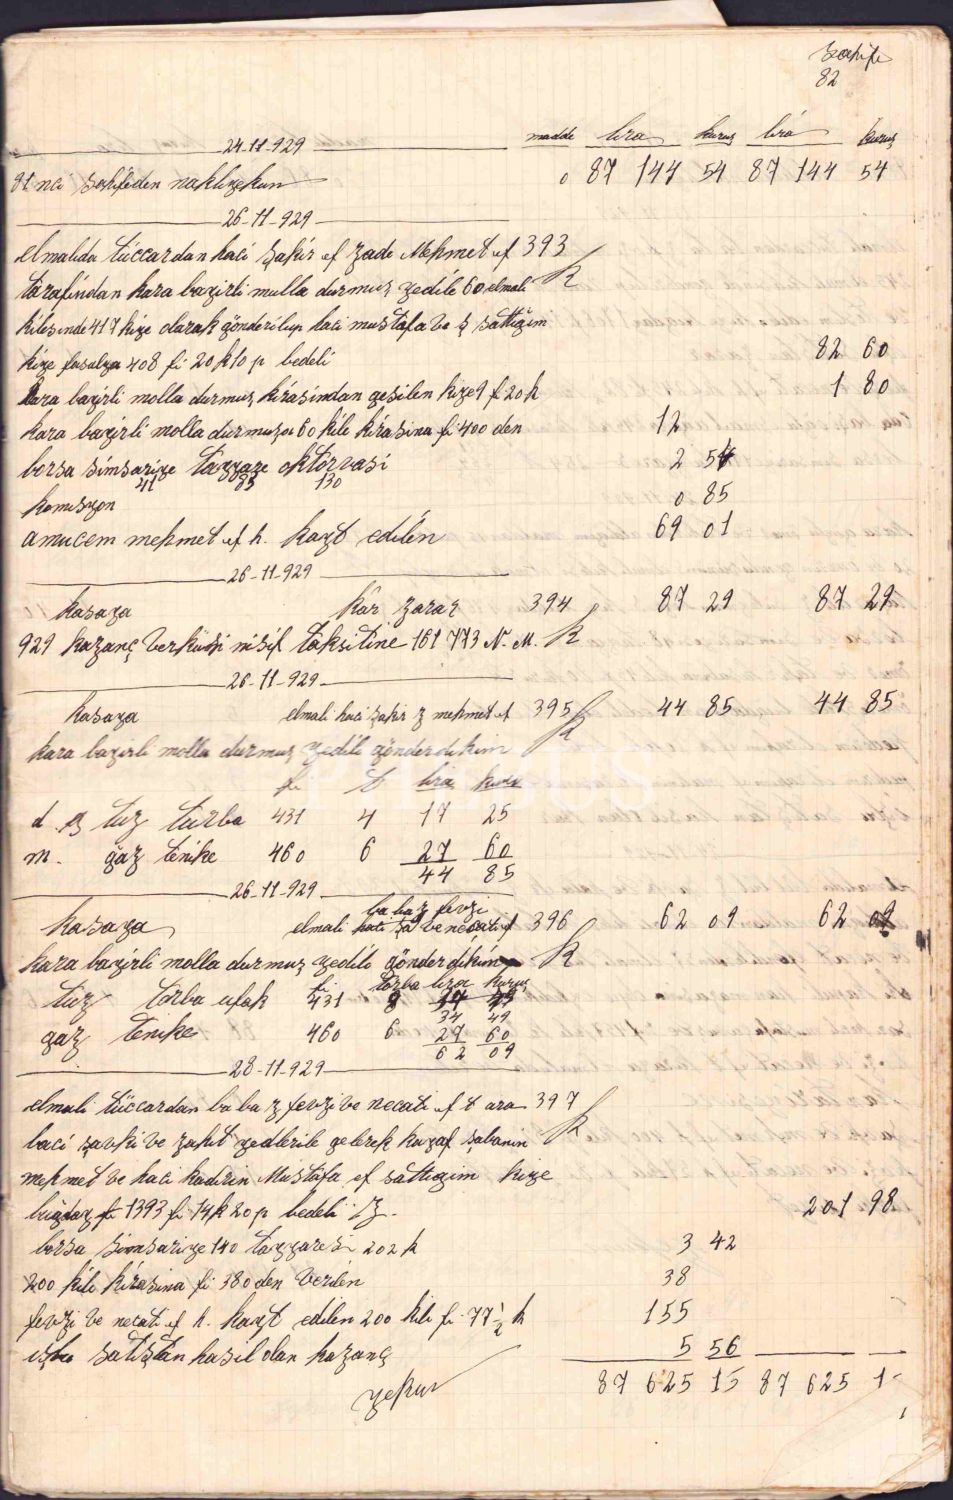 Sahife
82
24-11-929 madde lira kuruş lira kuruş
81 nci sahifeden nakliyekun 0 87 144 54 87 144 54
26-11-929
elmalıda tüccardan haci şakir ef zade Mehmet ef 393
tarafından kara bayirli mulla durmuş yedile 60 elmali
kilesinde 417 kiye olarak gönderilup haci mustafa ve ş sattigim
kiye fasulya 408 fi 20 k 10 p bedeli 82 60
kara bayirli molla durmuş kirasindan gesilen kiye 9 fi 20 k 1 80
kara bayirli molla durmuşa 60 kile kirasina fi 400 den 12
borsa simsariye tayyare oktorvasi 2 54
41 83 130
komusyon 0 85
amucem mehmet ef h. kayt edilen 69 01
26-11-929
kasaya kâr zarar 394 87 29 87 29
929 kazanç verkusi nisif taksitine 161 773 N. M.
26-11-929
kasaya elmali haci şakir z mehmet ef 395 44 85 44 85
kara bayirli molla durmuş yedile gönderdikim
fi t lira kuruş
d. tuz turba 431 4 17 25
m. gaz tenike 460 6 27 60
44 85
26-11-929
baba z fevzi
kasaya elmali ve necati ef 396 62 09 62 09
kara bayirli molla durmuş yedile gönderdikim
fi torba lira kuruş
tuz torba ufak 431 34 49
gaz tenike 460 6 27 60
62 09
28-11-929
elmali tüccardan baba z fevzi ve necati ef t ara 397
baci şavki ve zahit yedlerile gelerek kayaf şabanin
mehmet ve haci kadirin Mustafa ef sattigim kiye
bugday fi 1393 fi 14 k 20 p bedeli 201 98
borsa simsariye 140 tayyaresi 202 k 3 42
200 kile kirasina fi 380 den verilen 38
fevzi ve necati ef h. kayt edilen 200 kile fi 77 1/2 k 155
işbu satiştan hasil olan kazanç 5 56
yekun 87 625 15 87 625 1